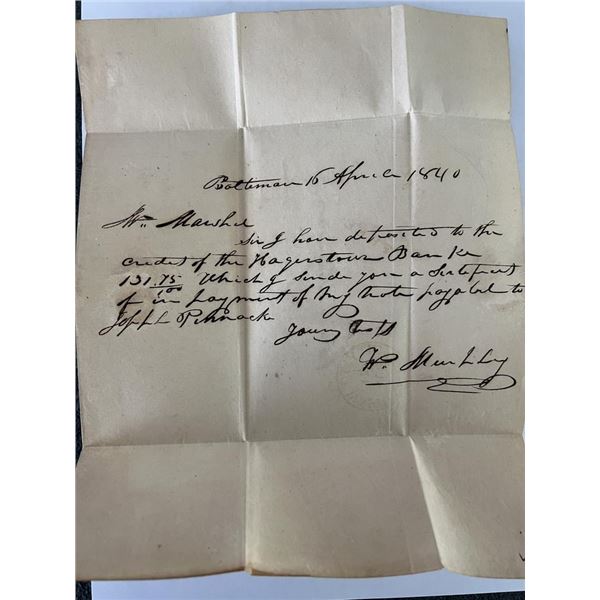 Baltimore 16 April 1840
Mr. Marshel
Sir I have deposited to the
credet of the Hagerstown Bank
131 75/100 Which I sende you a
of in payment of my Note payabel to
Joseph
Yours
Wm. Murphy